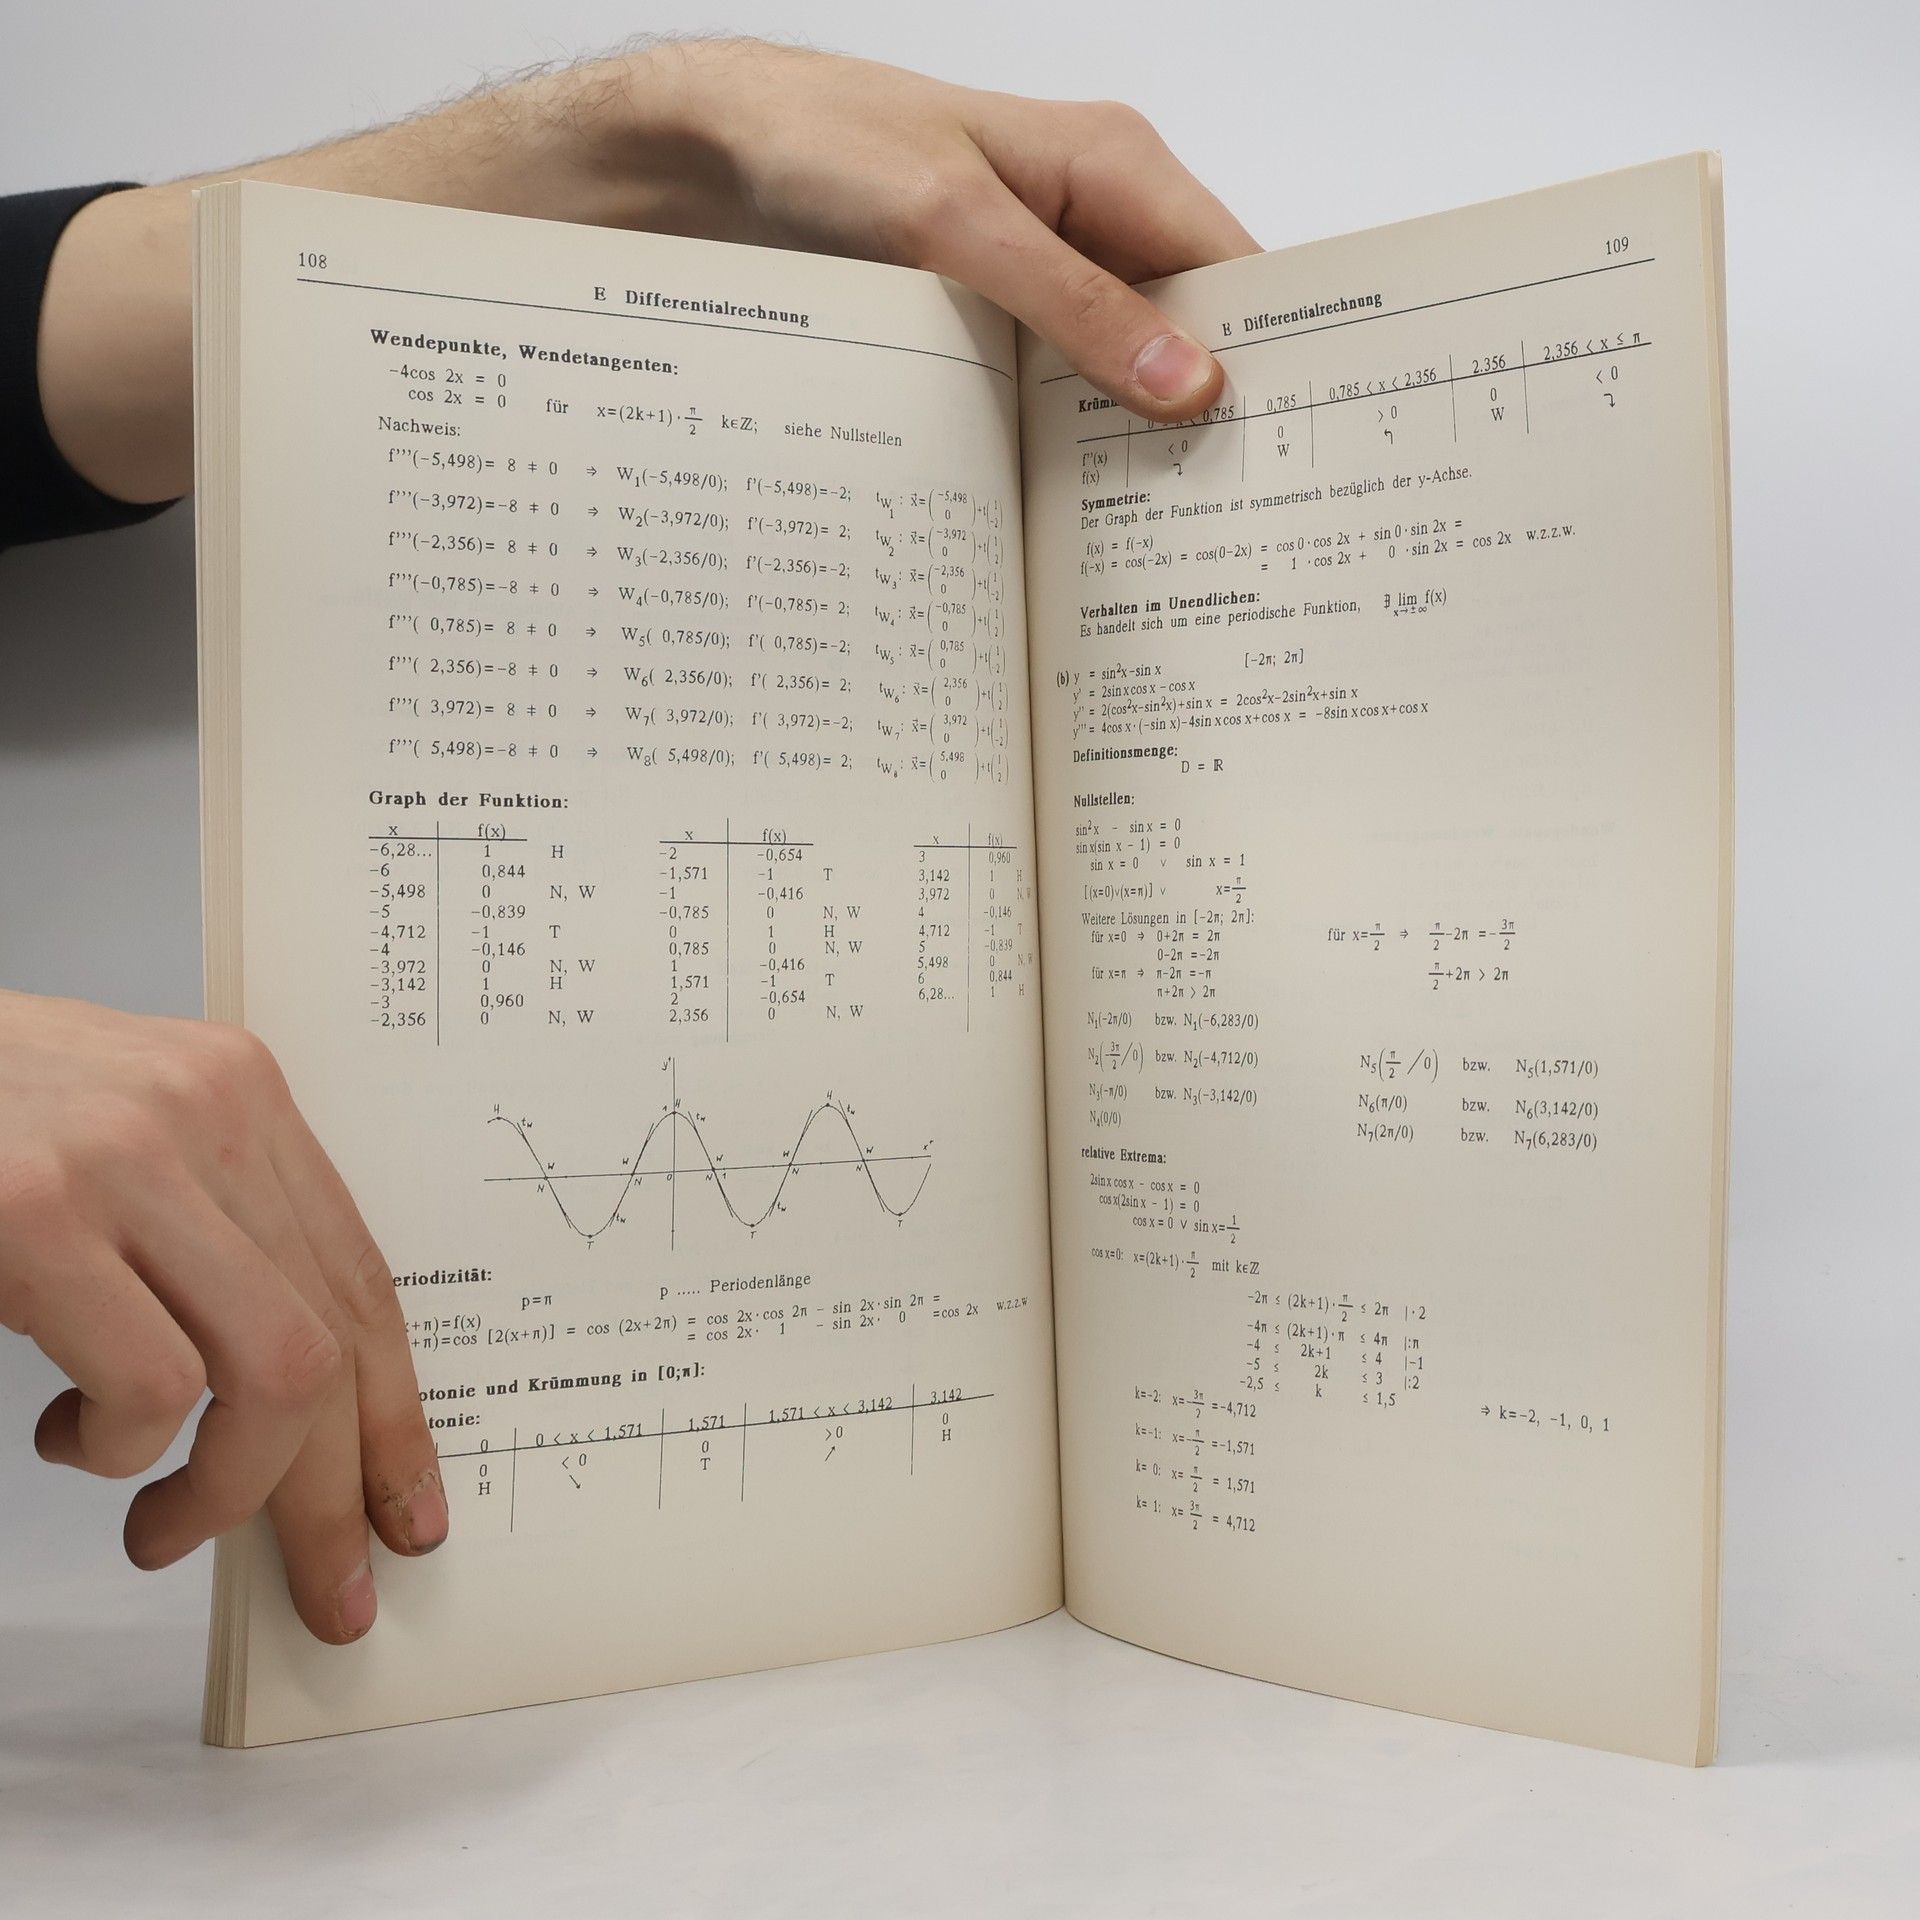 108
E Differentialrechnung
Wendepunkte, Wendetangenten:
-4cos 2x = 0
cos 2x = 0 für x=(2k+1)·π/2 k∈ℤ; siehe Nullstellen
Nachweis:
f'''(-5,498)= 8 ≠ 0 ⇒ W₁(-5,498/0); f'(-5,498)=-2; t_W₁: x⃗=(-5,498 0)+t(1 -2)
f'''(-3,972)=-8 ≠ 0 ⇒ W₂(-3,972/0); f'(-3,972)= 2; t_W₂: x⃗=(-3,972 0)+t(1 2)
f'''(-2,356)= 8 ≠ 0 ⇒ W₃(-2,356/0); f'(-2,356)=-2; t_W₃: x⃗=(-2,356 0)+t(1 -2)
f'''(-0,785)=-8 ≠ 0 ⇒ W₄(-0,785/0); f'(-0,785)= 2; t_W₄: x⃗=(-0,785 0)+t(1 2)
f'''( 0,785)= 8 ≠ 0 ⇒ W₅( 0,785/0); f'( 0,785)=-2; t_W₅: x⃗=(0,785 0)+t(1 -2)
f'''( 2,356)=-8 ≠ 0 ⇒ W₆( 2,356/0); f'( 2,356)= 2; t_W₆: x⃗=(2,356 0)+t(1 2)
f'''( 3,972)= 8 ≠ 0 ⇒ W₇( 3,972/0); f'( 3,972)=-2; t_W₇: x⃗=(3,972 0)+t(1 -2)
f'''( 5,498)=-8 ≠ 0 ⇒ W₈( 5,498/0); f'( 5,498)= 2; t_W₈: x⃗=(5,498 0)+t(1 2)
Graph der Funktion:
x f(x) x f(x) x f(x)
-6,28... 1 H -2 -0,654 3 0,960
-6 0,844 -1,571 -1 T 3,142 1 H
-5,498 0 N, W -1 -0,416 3,972 0 N, W
-5 -0,839 -0,785 0 N, W 4 -0,146
-4,712 -1 T 0 1 H 4,712 -1 T
-4 -0,146 0,785 0 N, W 5 -0,839
-3,972 0 N, W 1 -0,416 5,498 0 N, W
-3,142 1 H 1,571 -1 T 6 0,844
-3 0,960 2 -0,654 6,28... 1 H
-2,356 0 N, W 2,356 0 N, W
eriodizität:
p=π p ..... Periodenlänge
x+π)=f(x)
+π)=cos [2(x+π)] = cos (2x+2π) = cos 2x·cos 2π - sin 2x·sin 2π =
= cos 2x· 1 - sin 2x· 0 =cos 2x w.z.z.w
otonie und Krümmung in [0;π]:
tonie:
0 0 < x < 1,571 1,571 1,571 < x < 3,142 3,142
0 < 0 0 >0 0
H ↘ T ↗ H
109
E Differentialrechnung
Krüm
0,785 0,785 0,785 < x < 2,356 2.356 2,356 < x ≤ π
f''(x) < 0 0 > 0 0 < 0
f(x) W W
Symmetrie:
Der Graph der Funktion ist symmetrisch bezüglich der y-Achse.
f(x) = f(-x)
f(-x) = cos(-2x) = cos(0-2x) = cos 0·cos 2x + sin 0·sin 2x =
= 1 ·cos 2x + 0 ·sin 2x = cos 2x w.z.z.w.
Verhalten im Unendlichen:
Es handelt sich um eine periodische Funktion, ∄ lim f(x) x→±∞
(b) y = sin²x-sin x [-2π; 2π]
y' = 2sin x cos x - cos x
y'' = 2(cos²x-sin²x)+sin x = 2cos²x-2sin²x+sin x
y''' = 4cos x·(-sin x)-4sin x cos x+cos x = -8sin x cos x+cos x
Definitionsmenge:
D = ℝ
Nullstellen:
sin²x - sin x = 0
sin x(sin x - 1) = 0
sin x = 0 ∨ sin x = 1
[(x=0)∨(x=π)] ∨ x=π/2
Weitere Lösungen in [-2π; 2π]:
für x=0 ⇒ 0+2π = 2π für x=π/2 ⇒ π/2-2π =-3π/2
0-2π =-2π
für x=π ⇒ π-2π =-π π/2+2π > 2π
π+2π > 2π
N₁(-2π/0) bzw. N₁(-6,283/0)
N₂(-3π/2 /0) bzw. N₂(-4,712/0) N₅(π/2 /0) bzw. N₅(1,571/0)
N₃(-π/0) bzw. N₃(-3,142/0) N₆(π/0) bzw. N₆(3,142/0)
N₄(0/0) N₇(2π/0) bzw. N₇(6,283/0)
relative Extrema:
2sin x cos x - cos x = 0
cos x(2sin x - 1) = 0
cos x = 0 ∨ sin x=1/2
cos x=0: x=(2k+1)·π/2 mit k∈ℤ
-2π ≤ (2k+1)·π/2 ≤ 2π |·2
-4π ≤ (2k+1)·π ≤ 4π |:π
-4 ≤ 2k+1 ≤ 4 |-1
-5 ≤ 2k ≤ 3 |:2
-2,5 ≤ k ≤ 1,5 ⇒ k=-2, -1, 0, 1
k=-2: x=-3π/2 =-4,712
k=-1: x=-π/2 =-1,571
k= 0: x= π/2 = 1,571
k= 1: x= 3π/2 = 4,712